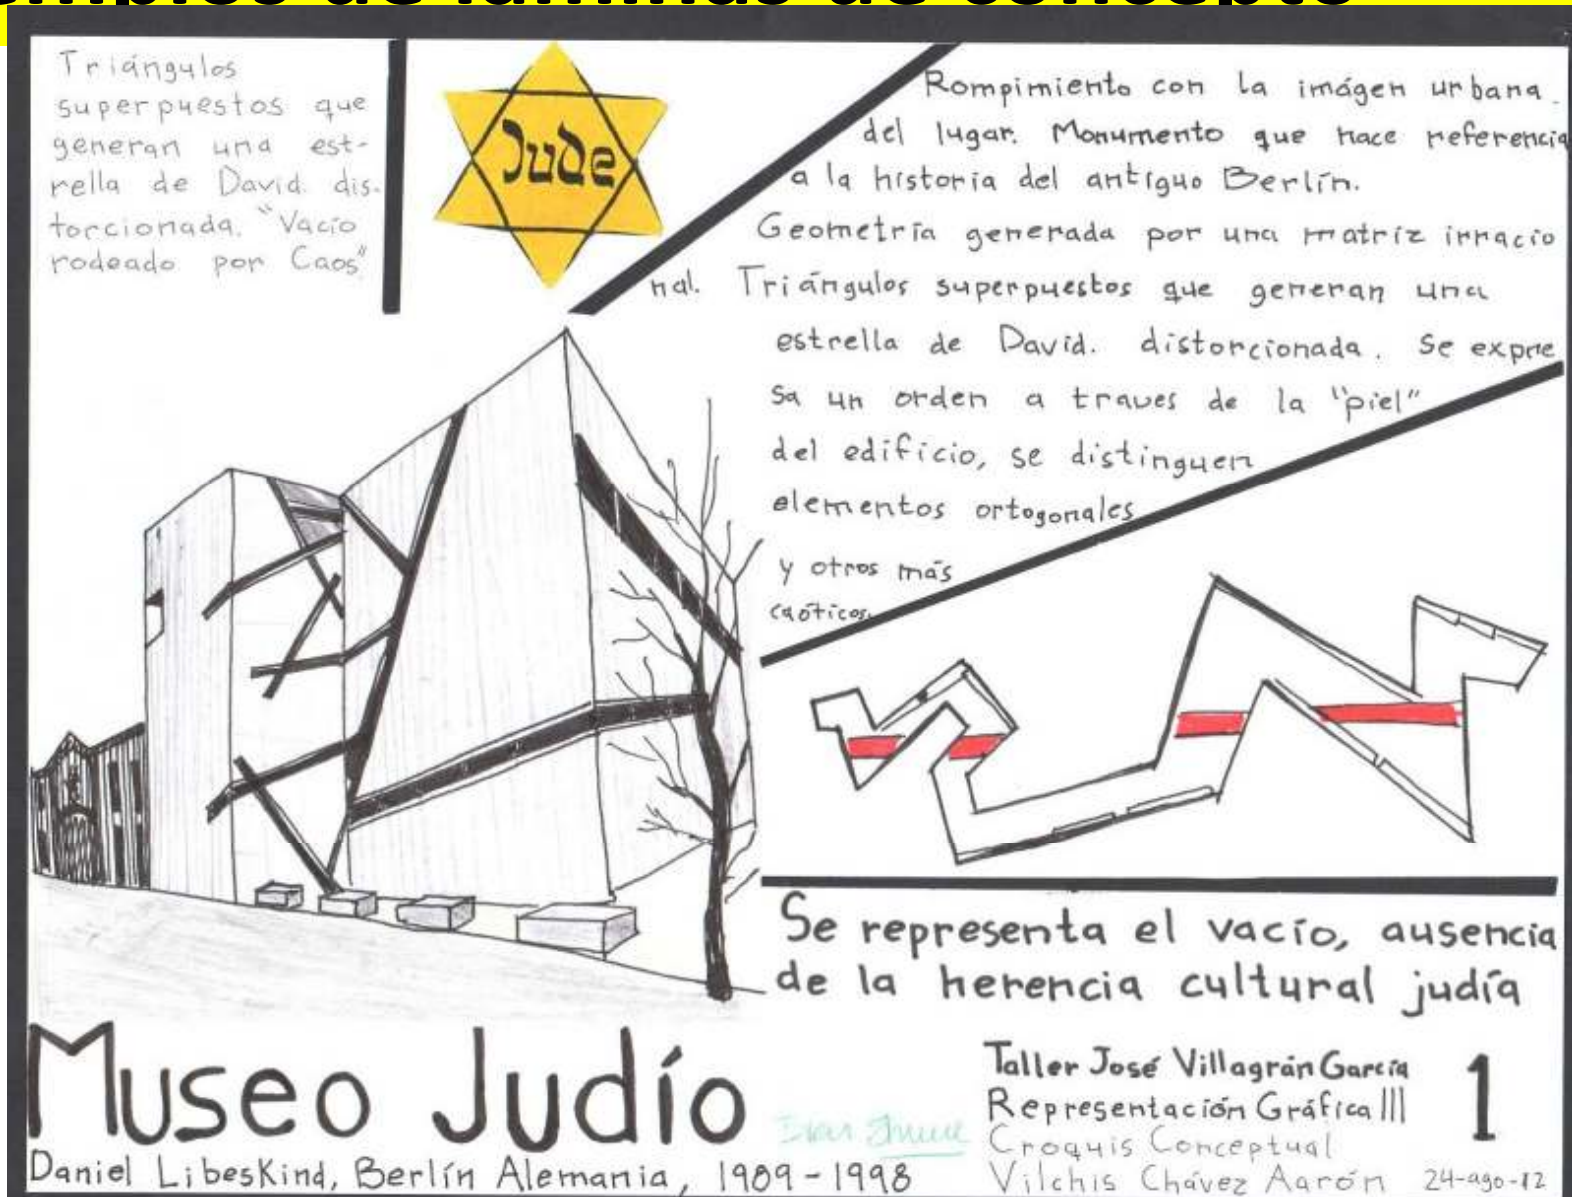 Triángulos
superpuestos que
generan una est-
rella de David. dis-
torcionada. "Vacío
rodeado por Caos"
Jude
Rompimiento con la imágen urbana.
del lugar. Monumento que hace referencia
a la historia del antiguo Berlín.
Geometría generada por una matríz irracio
nal. Triángulos superpuestos que generan una
estrella de David. distorcionada. Se expre
sa un orden a traves de la "piel"
del edificio, se distinguen
elementos ortogonales
y otros más
caóticos.
Se representa el vacío, ausencia
de la herencia cultural judía
Museo Judío
Daniel Libeskind, Berlín Alemania, 1989-1998
Taller José Villagrán García
Representación Gráfica III
Croquis Conceptual
Vilchis Chávez Aarón 24-ago-12
1